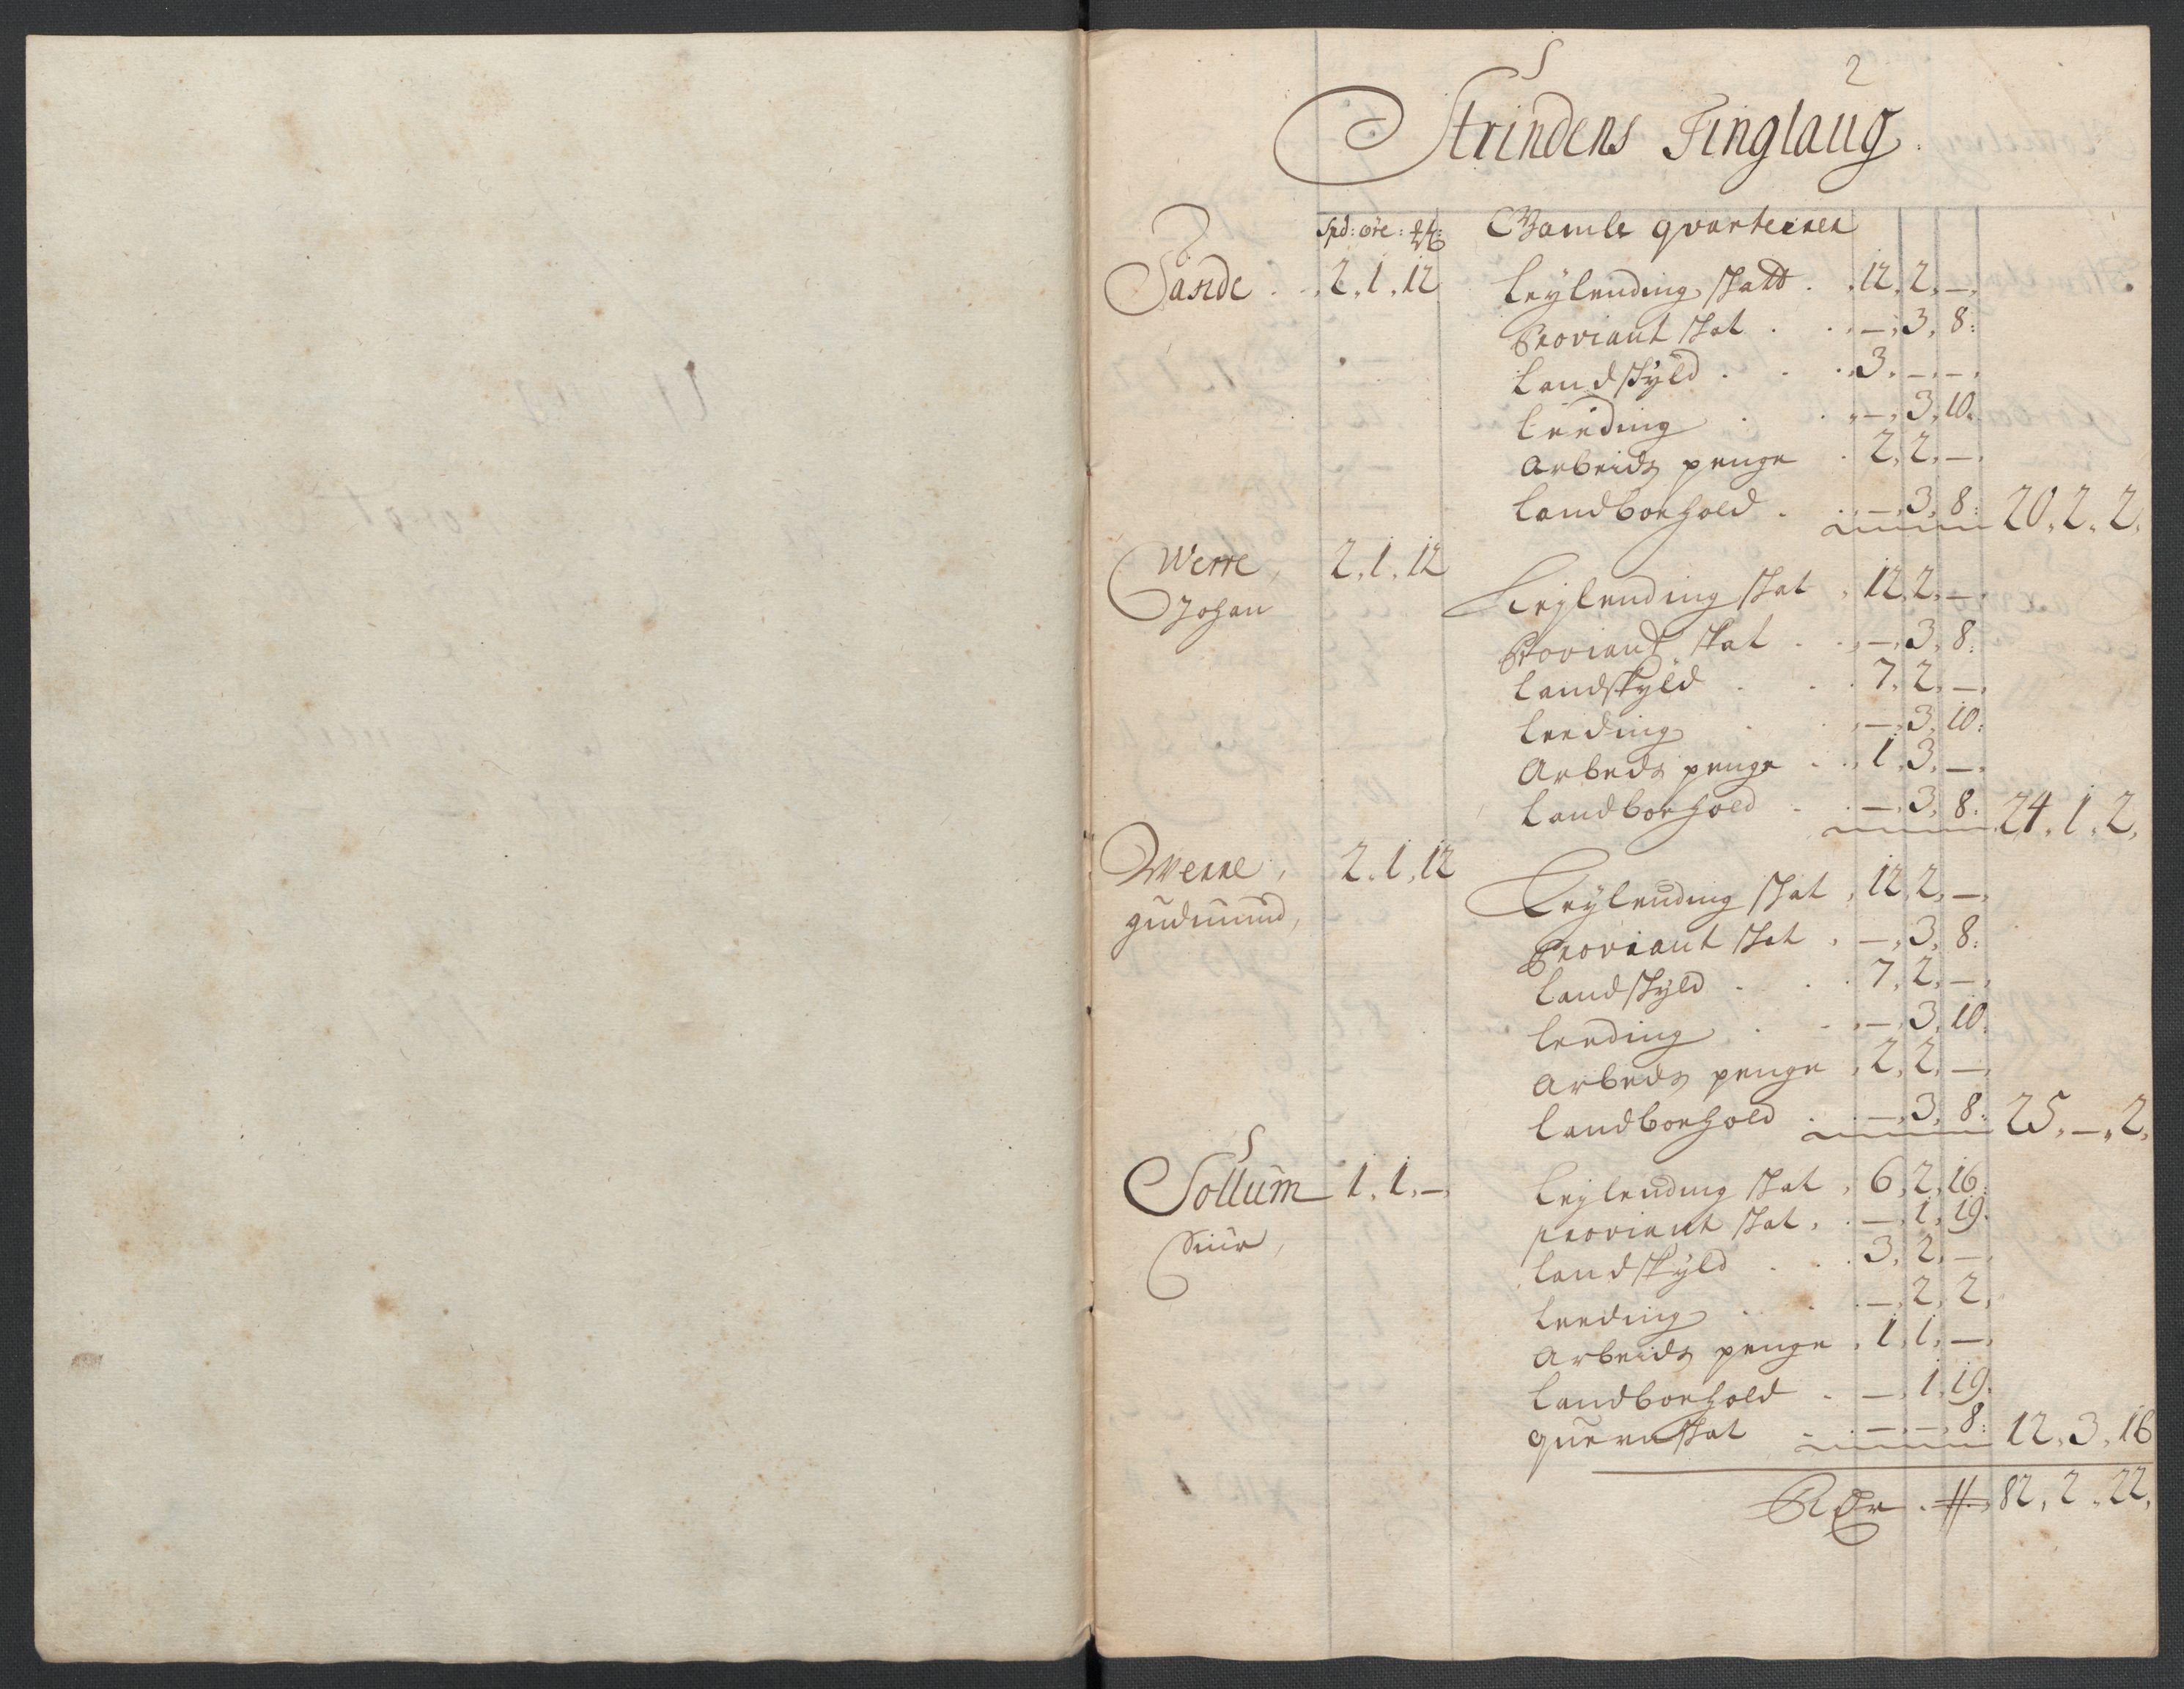 2
Strindens Tinglaug.
Spd: øre: Gamle qvarteerer
Sande. 2. 1. 12 Leylending Skatt. 12. 2. —
Proviant Skat. — 3. 8:
Landskyld. 3. — —
Leeding — 3. 10.
Arbeids penge. 2. 2. —
Landboehold. — 3. 8: 20. 2. 2.
Werre, 2. 1. 12 Leylending skat. 12. 2. —
Johan
Proviant skat. — 3. 8:
Landskyld. 7. 2. —
Leeding — 3. 10:
Arbeds penge. 1. 3. —
Landboehold — 3. 8: 24. 1. 2.
Werre, 2. 1. 12 Leylending skat. 12. 2. —
gudmund,
Proviant skat. — 3. 8:
Landskyld. 7. 2. —
Leeding — 3. 10.
Arbeds penge. 2. 2. —
Landboehold. — 3. 8: 25. — 2.
Sollum 1. 1. — Leylending skat. 6. 2. 16:
Siur,
proviant skat. — 1. 19.
Landskyld. 3. 2. —
Leeding. — 2. 2.
Arbeids penge. 1. 1. —
Landboehold. — 1. 19.
quernskat — — 8: 12. 3. 16
82. 2. 22.